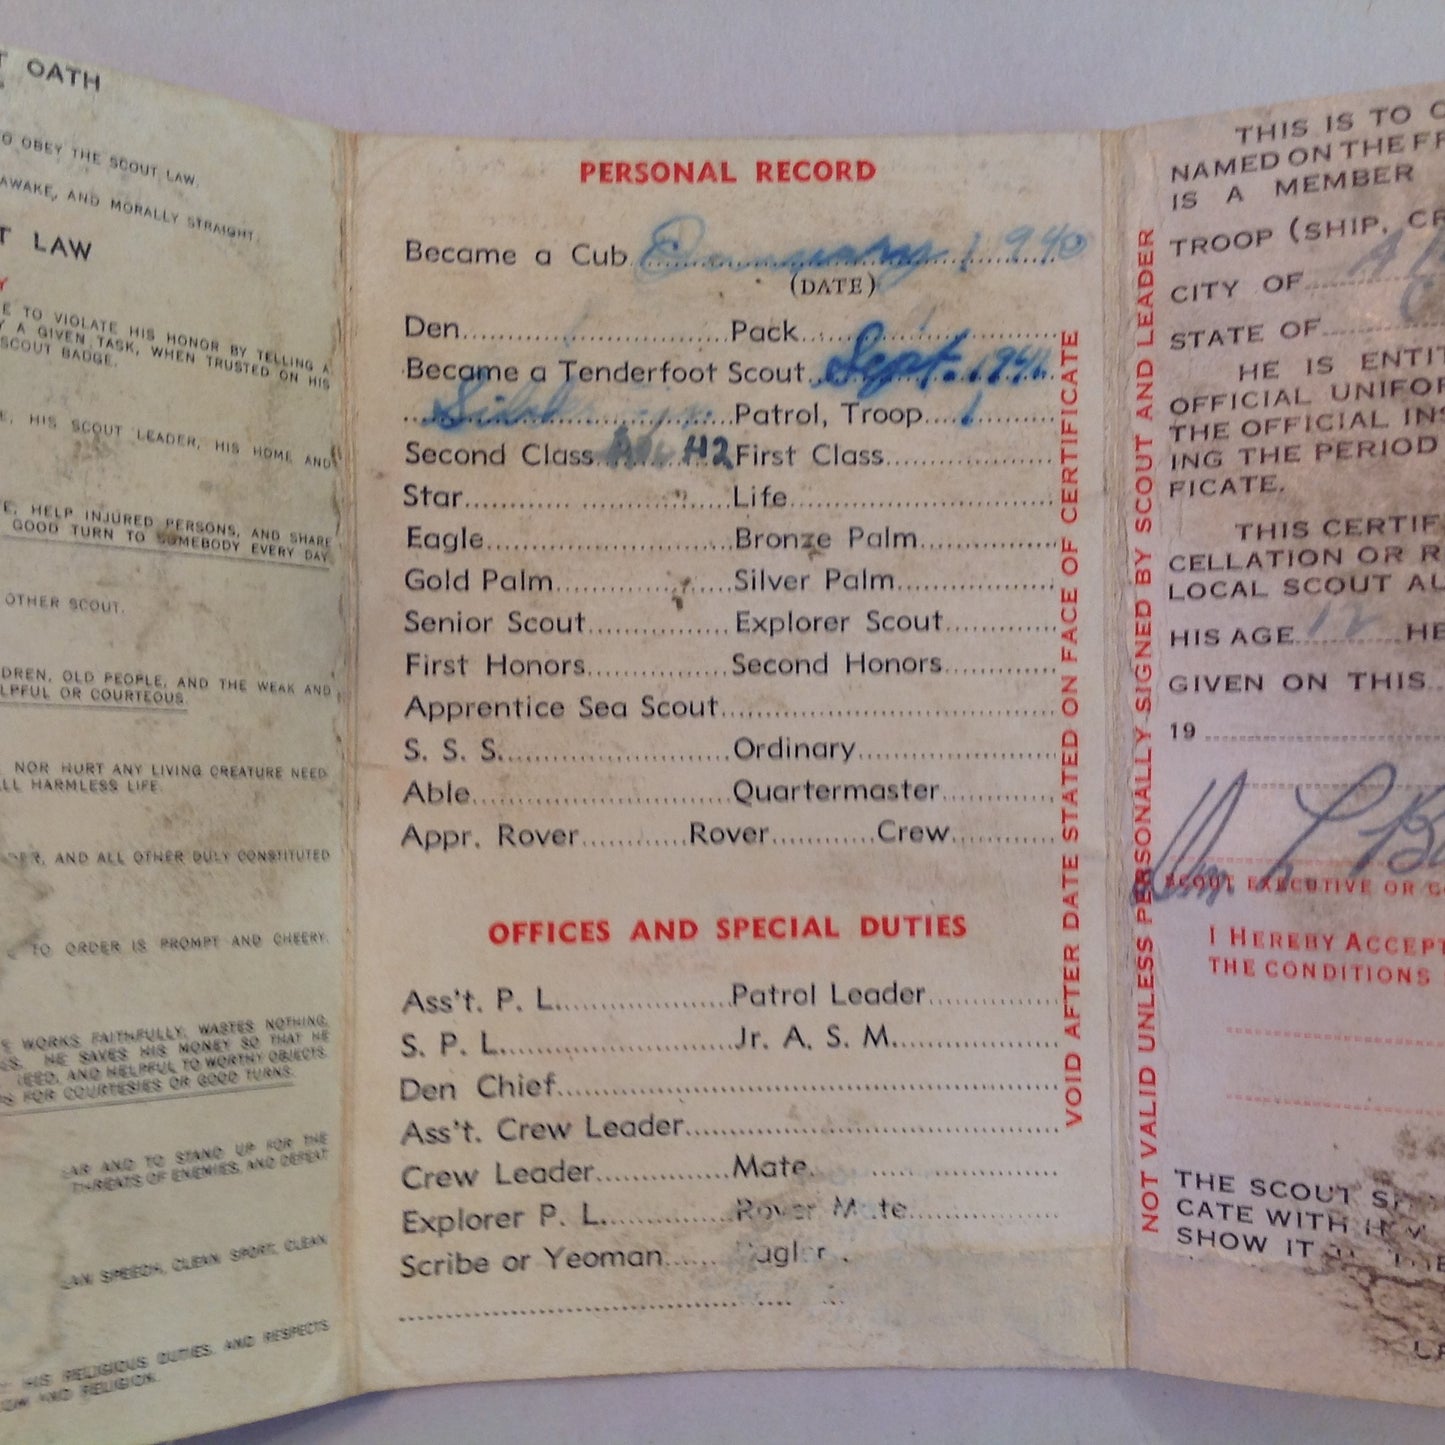 OATH
OBEY THE SCOUT LAW.
AWAKE, AND MORALLY STRAIGHT.
LAW
TO VIOLATE HIS HONOR BY TELLING A
A GIVEN TASK, WHEN TRUSTED ON HIS
SCOUT BADGE.
HIS SCOUT LEADER, HIS HOME AND
HELP INJURED PERSONS, AND SHARE
GOOD TURN TO SOMEBODY EVERY DAY.
OTHER SCOUT.
OLD PEOPLE, AND THE WEAK AND
OR COURTEOUS.
NOR HURT ANY LIVING CREATURE NEED
HARMLESS LIFE.
AND ALL OTHER DULY CONSTITUTED
TO ORDER IS PROMPT AND CHEERY.
WORKS FAITHFULLY, WASTES NOTHING,
HE SAVES HIS MONEY SO THAT HE
AND HELPFUL TO WORTHY OBJECTS.
FOR COURTESIES OR GOOD TURNS.
AND TO STAND UP FOR THE
THREATS OF ENEMIES, AND DEFEAT
SPEECH, CLEAN SPORT, CLEAN
HIS RELIGIOUS DUTIES, AND RESPECTS
AND RELIGION.
PERSONAL RECORD
Became a Cub 1940
(DATE)
Den Pack
Became a Tenderfoot Scout Sept. 1941
Patrol, Troop 1
Second Class 42 First Class
Star Life
Eagle Bronze Palm
Gold Palm Silver Palm
Senior Scout Explorer Scout
First Honors Second Honors
Apprentice Sea Scout
S. S. S. Ordinary
Able Quartermaster
Appr. Rover Rover Crew
OFFICES AND SPECIAL DUTIES
Ass't. P. L. Patrol Leader
S. P. L. Jr. A. S. M.
Den Chief
Ass't. Crew Leader
Crew Leader Mate
Explorer P. L. Rover
Scribe or Yeoman
VOID AFTER DATE STATED ON FACE OF CERTIFICATE
NOT VALID UNLESS PERSONALLY SIGNED BY SCOUT AND LEADER
THIS IS TO
NAMED ON THE
IS A MEMBER
TROOP (SHIP,
CITY OF
STATE OF
HE IS
OFFICIAL
THE OFFICIAL
ING THE PERIOD
FICATE.
THIS
CELLATION OR
LOCAL SCOUT
HIS AGE 12
GIVEN ON THIS
19
Wm. L.
SCOUT EXECUTIVE OR
I HEREBY ACCEPT
THE CONDITIONS
THE SCOUT
CATE WITH
SHOW IT